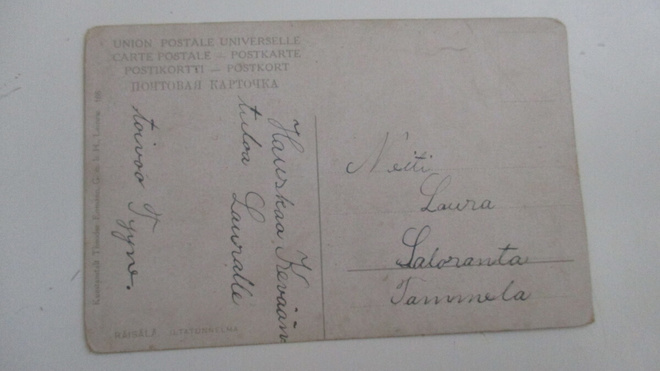 UNION POSTALE UNIVERSELLE
CARTE POSTALE — POSTKARTE
POSTIKORTTI — POSTKORT
ПОЧТОВАЯ КАРТОЧКА
Hauskaa Kevään
tuloa Lauralle
toivoo Tyyne.
Neiti
Laura
Saloranta
Tammela